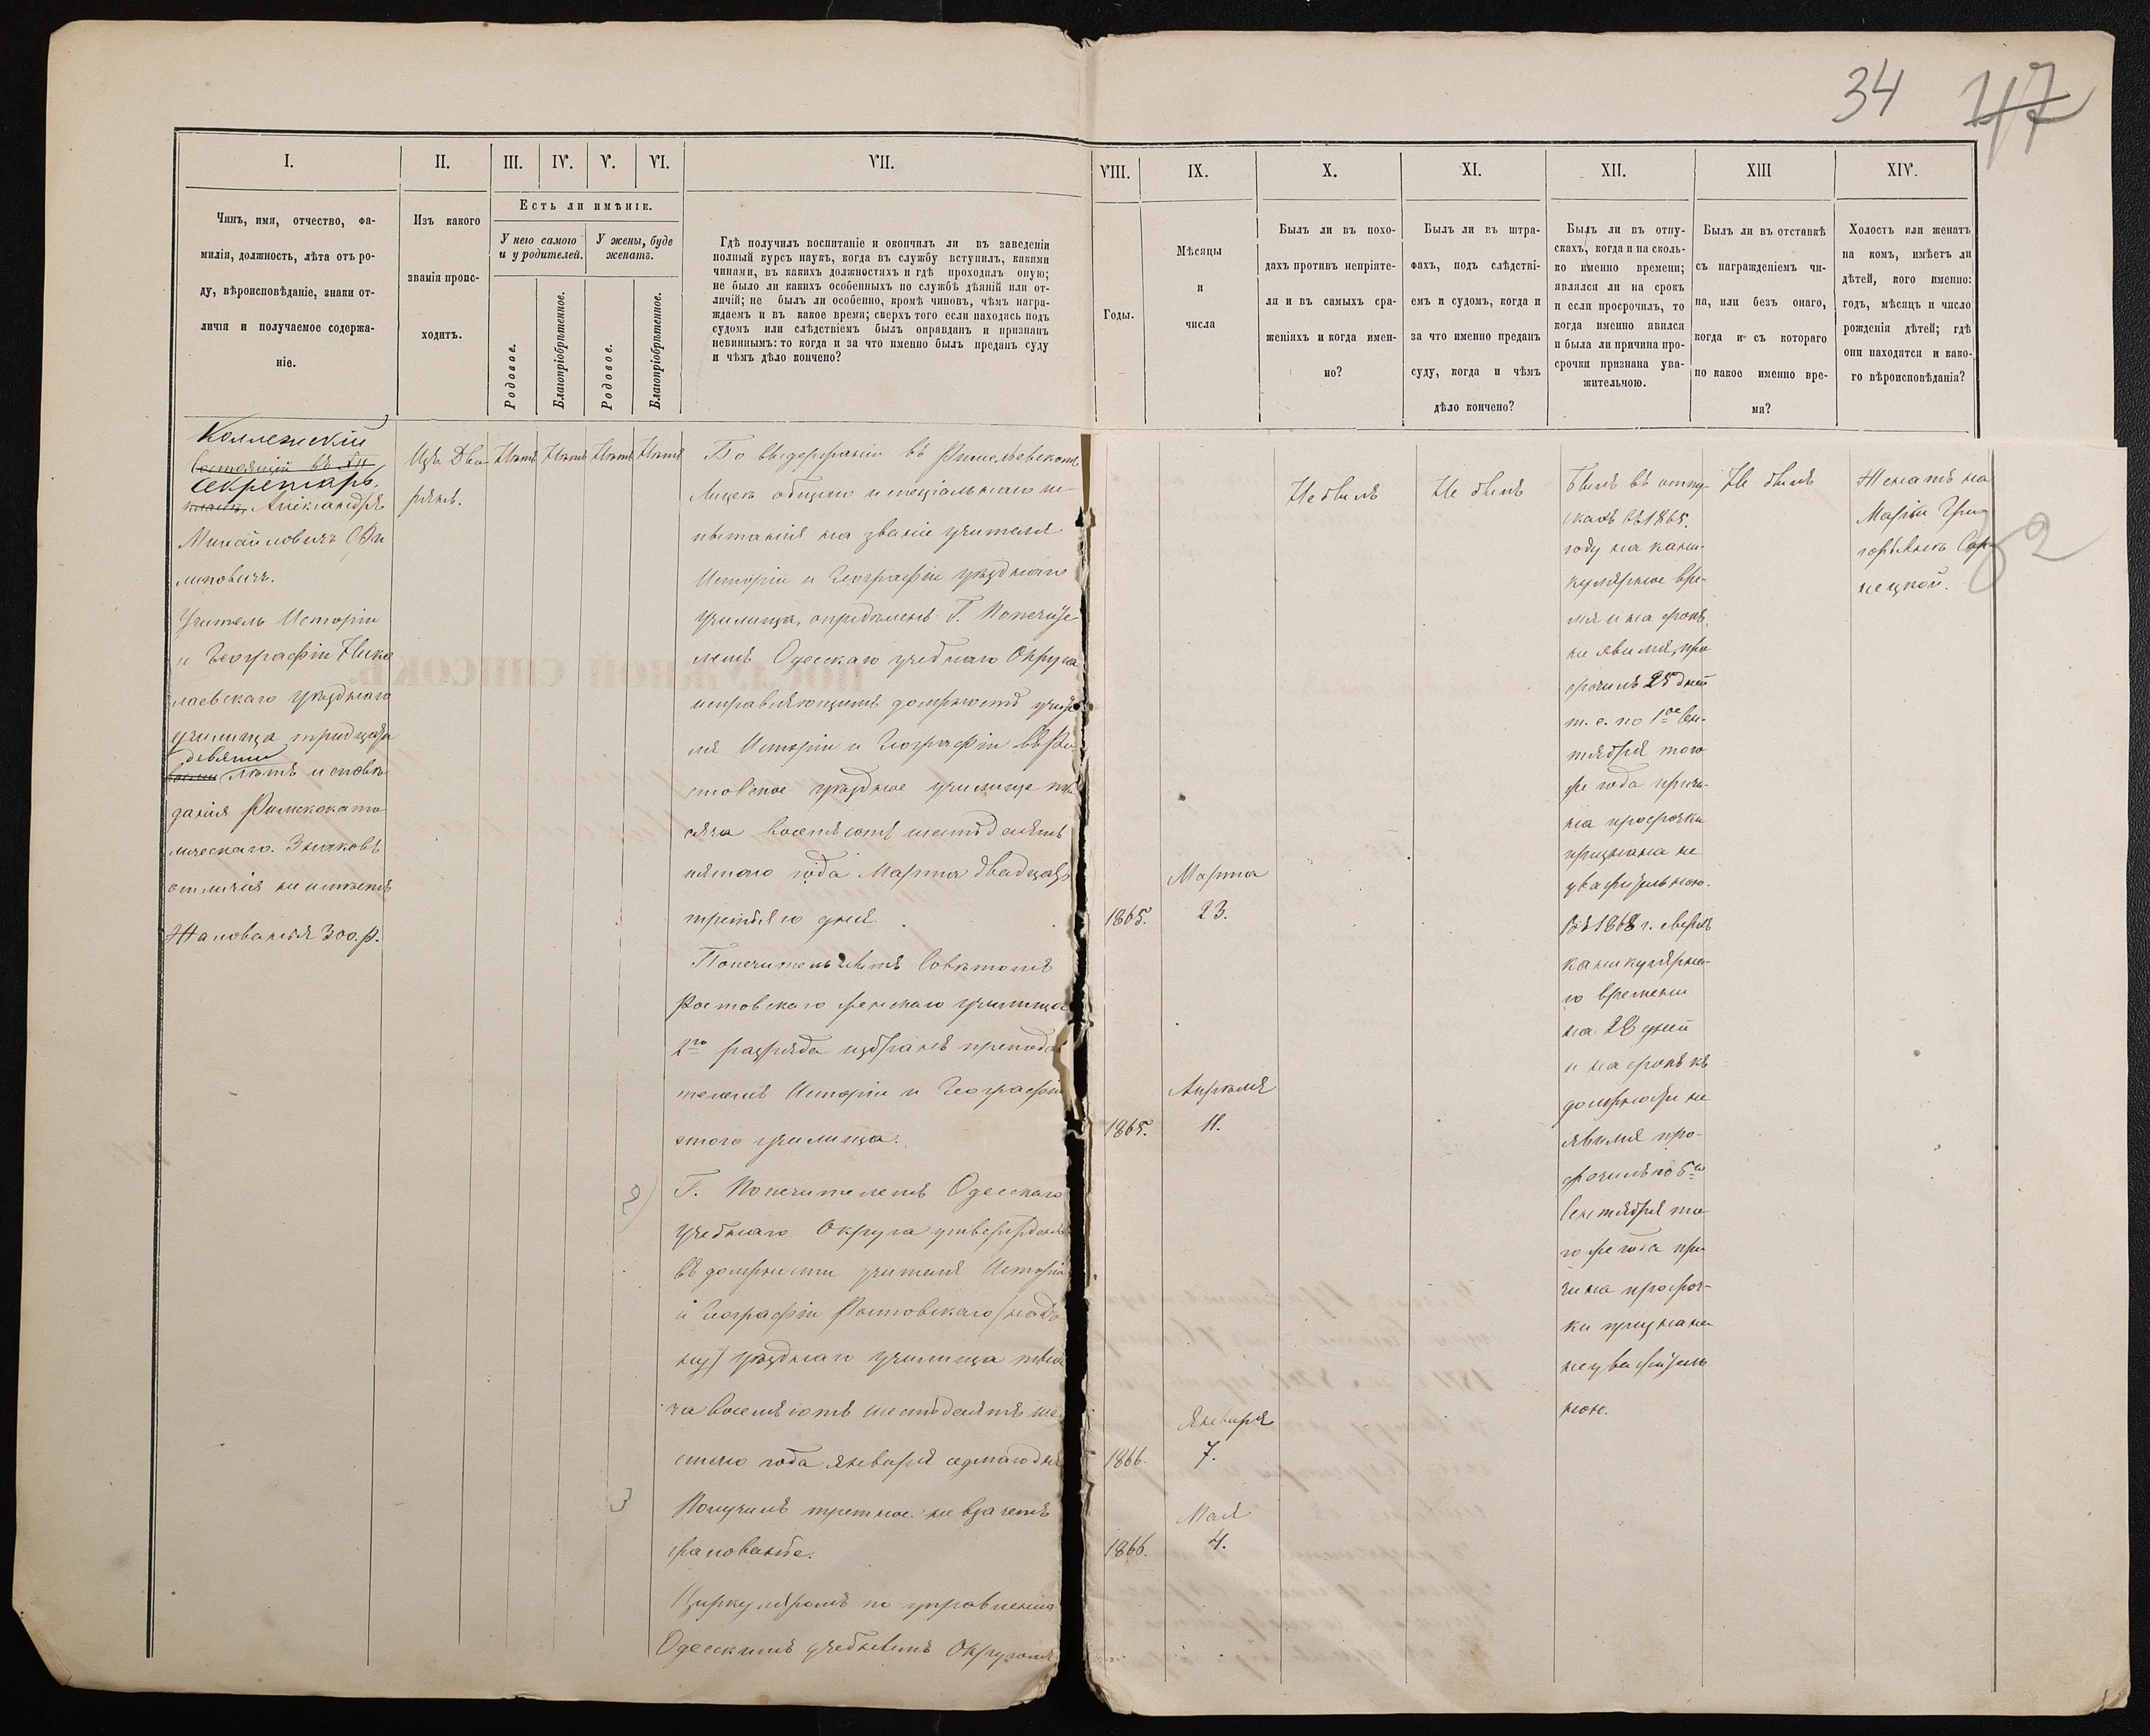 34 47
I.
II.
III.
IV.
V.
VI.
VII.
VIII.
IX.
X.
XI.
XII.
XIII
XIV.
Чинъ, имя, отчество, фа-
милія, должность, лѣта отъ ро-
ду, вѣроисповѣданіе, знаки от-
личія и получаемое содержа-
ніе.
Изъ какого
званія проис-
ходитъ.
Есть ли имѣніе.
У него самого
и у родителей.
У жены, буде
женатъ.
Родовое.
Благопріобрѣтенное.
Родовое.
Благопріобрѣтенное.
Гдѣ получилъ воспитаніе и окончилъ ли въ заведеніи
полный курсъ наукъ, когда въ службу вступилъ, какими
чинами, въ какихъ должностяхъ и гдѣ проходилъ оную;
не было ли какихъ особенныхъ по службѣ дѣяній или от-
личій; не былъ ли особенно, кромѣ чиновъ, чѣмъ награ-
ждаемъ и въ какое время; сверхъ того если находясь подъ
судомъ или слѣдствіемъ былъ оправданъ и признанъ
невиннымъ: то когда и за что именно былъ преданъ суду
и чѣмъ дѣло кончено?
Годы.
Мѣсяцы
и
числа
Былъ ли въ похо-
дахъ противъ непріяте-
ля и въ самыхъ сра-
женіяхъ и когда имен-
но?
Былъ ли въ штра-
фахъ, подъ слѣдстві-
емъ и судомъ, когда и
за что именно преданъ
суду, когда и чѣмъ
дѣло кончено?
Былъ ли въ отпу-
скахъ, когда и на сколь-
ко именно времени;
являлся ли на срокъ
и если просрочилъ, то
когда именно явился
и была ли причина про-
срочки признана ува-
жительною.
Былъ ли въ отставкѣ
съ награжденіемъ чи-
на, или безъ онаго,
когда и съ котораго
по какое именно вре-
мя?
Холостъ или женатъ
на комъ, имѣетъ ли
дѣтей, кого именно:
годъ, мѣсяцъ и число
рожденія дѣтей; гдѣ
они находятся и како-
го вѣроисповѣданія?
Коллежскій
Состоящій въ
Секретарь.
Александръ
Михайловичъ Фи
липовичъ.
Учитель Исторіи
и Географіи Нико
лаевскаго уѣзднаго
училища тридцати
девяти
восьми лѣтъ исповѣ
данія Римскокато
лическаго. Знаковъ
отличія не имѣетъ
Жалованья 300 р.
Изъ Дво
рянъ.
Нѣтъ
Нѣтъ
Нѣтъ
Нѣтъ
По выдержаніи въ Ришельевскомъ
Лицеѣ общаго и спеціальнаго ис-
пытанія на званіе учителя
Исторіи и Географіи уѣзднаго
училища, опредѣленъ Г. Попечите
лемъ Одесскаго учебнаго Округа
исправляющимъ должность учите
ля Исторіи и Географіи въ Ро
стовское уѣздное училище ты
сяча восемьсотъ шестьдесятъ
пятаго года Марта двадцать
третьяго дня.
Попечительнымъ Совѣтомъ
Ростовскаго женскаго училища
2го разряда избранъ препода
телемъ Исторіи и Географіи
этого училища.
2) Г. Попечителемъ Одесскаго
Учебнаго Округа утвержденъ
въ должности учителя Исторіи
и Географіи Ростовскаго (на До-
ну) уѣзднаго училища тыся
ча восемьсотъ шестьдесятъ ше
стого года Января седмаго дня
3 Получилъ третное не въ зачетъ
жалованье.
Циркуляромъ по управленію
Одесскимъ учебнымъ Округомъ
1865.
Марта
23.
1865.
Апрѣля
11.
1866.
Января
7.
1866.
Мая
4.
Не былъ
Не былъ
Былъ въ отпу-
скахъ въ 1865.
году на кани-
кулярное вре-
мя и на срокъ
не явился, про
срочилъ 25 дней
т. е. по 1ое Сен-
тября того
же года причи-
на просрочки
признана не
уважительною.
Въ 1868 г. сверхъ
каникулярна-
го времени
на 28 дней
и на срокъ къ
должности не
явился про-
срочилъ по 5ое
Сентября то
го же года при
чина просроч-
ки признана
неуважитель
ною.
Не былъ
Женатъ на
Маріи Гри-
горьевнѣ Сар-
нецкой.
2